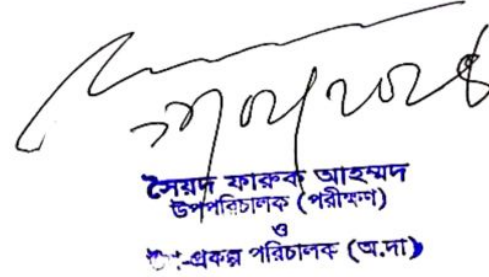 সৈয়দ ফারুক আহম্মদ
উপপরিচালক (পরীক্ষণ)
ও
প্রকল্প পরিচালক (অ.দা)